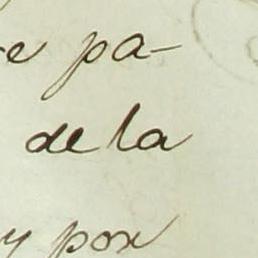 e pa-
de la
y por